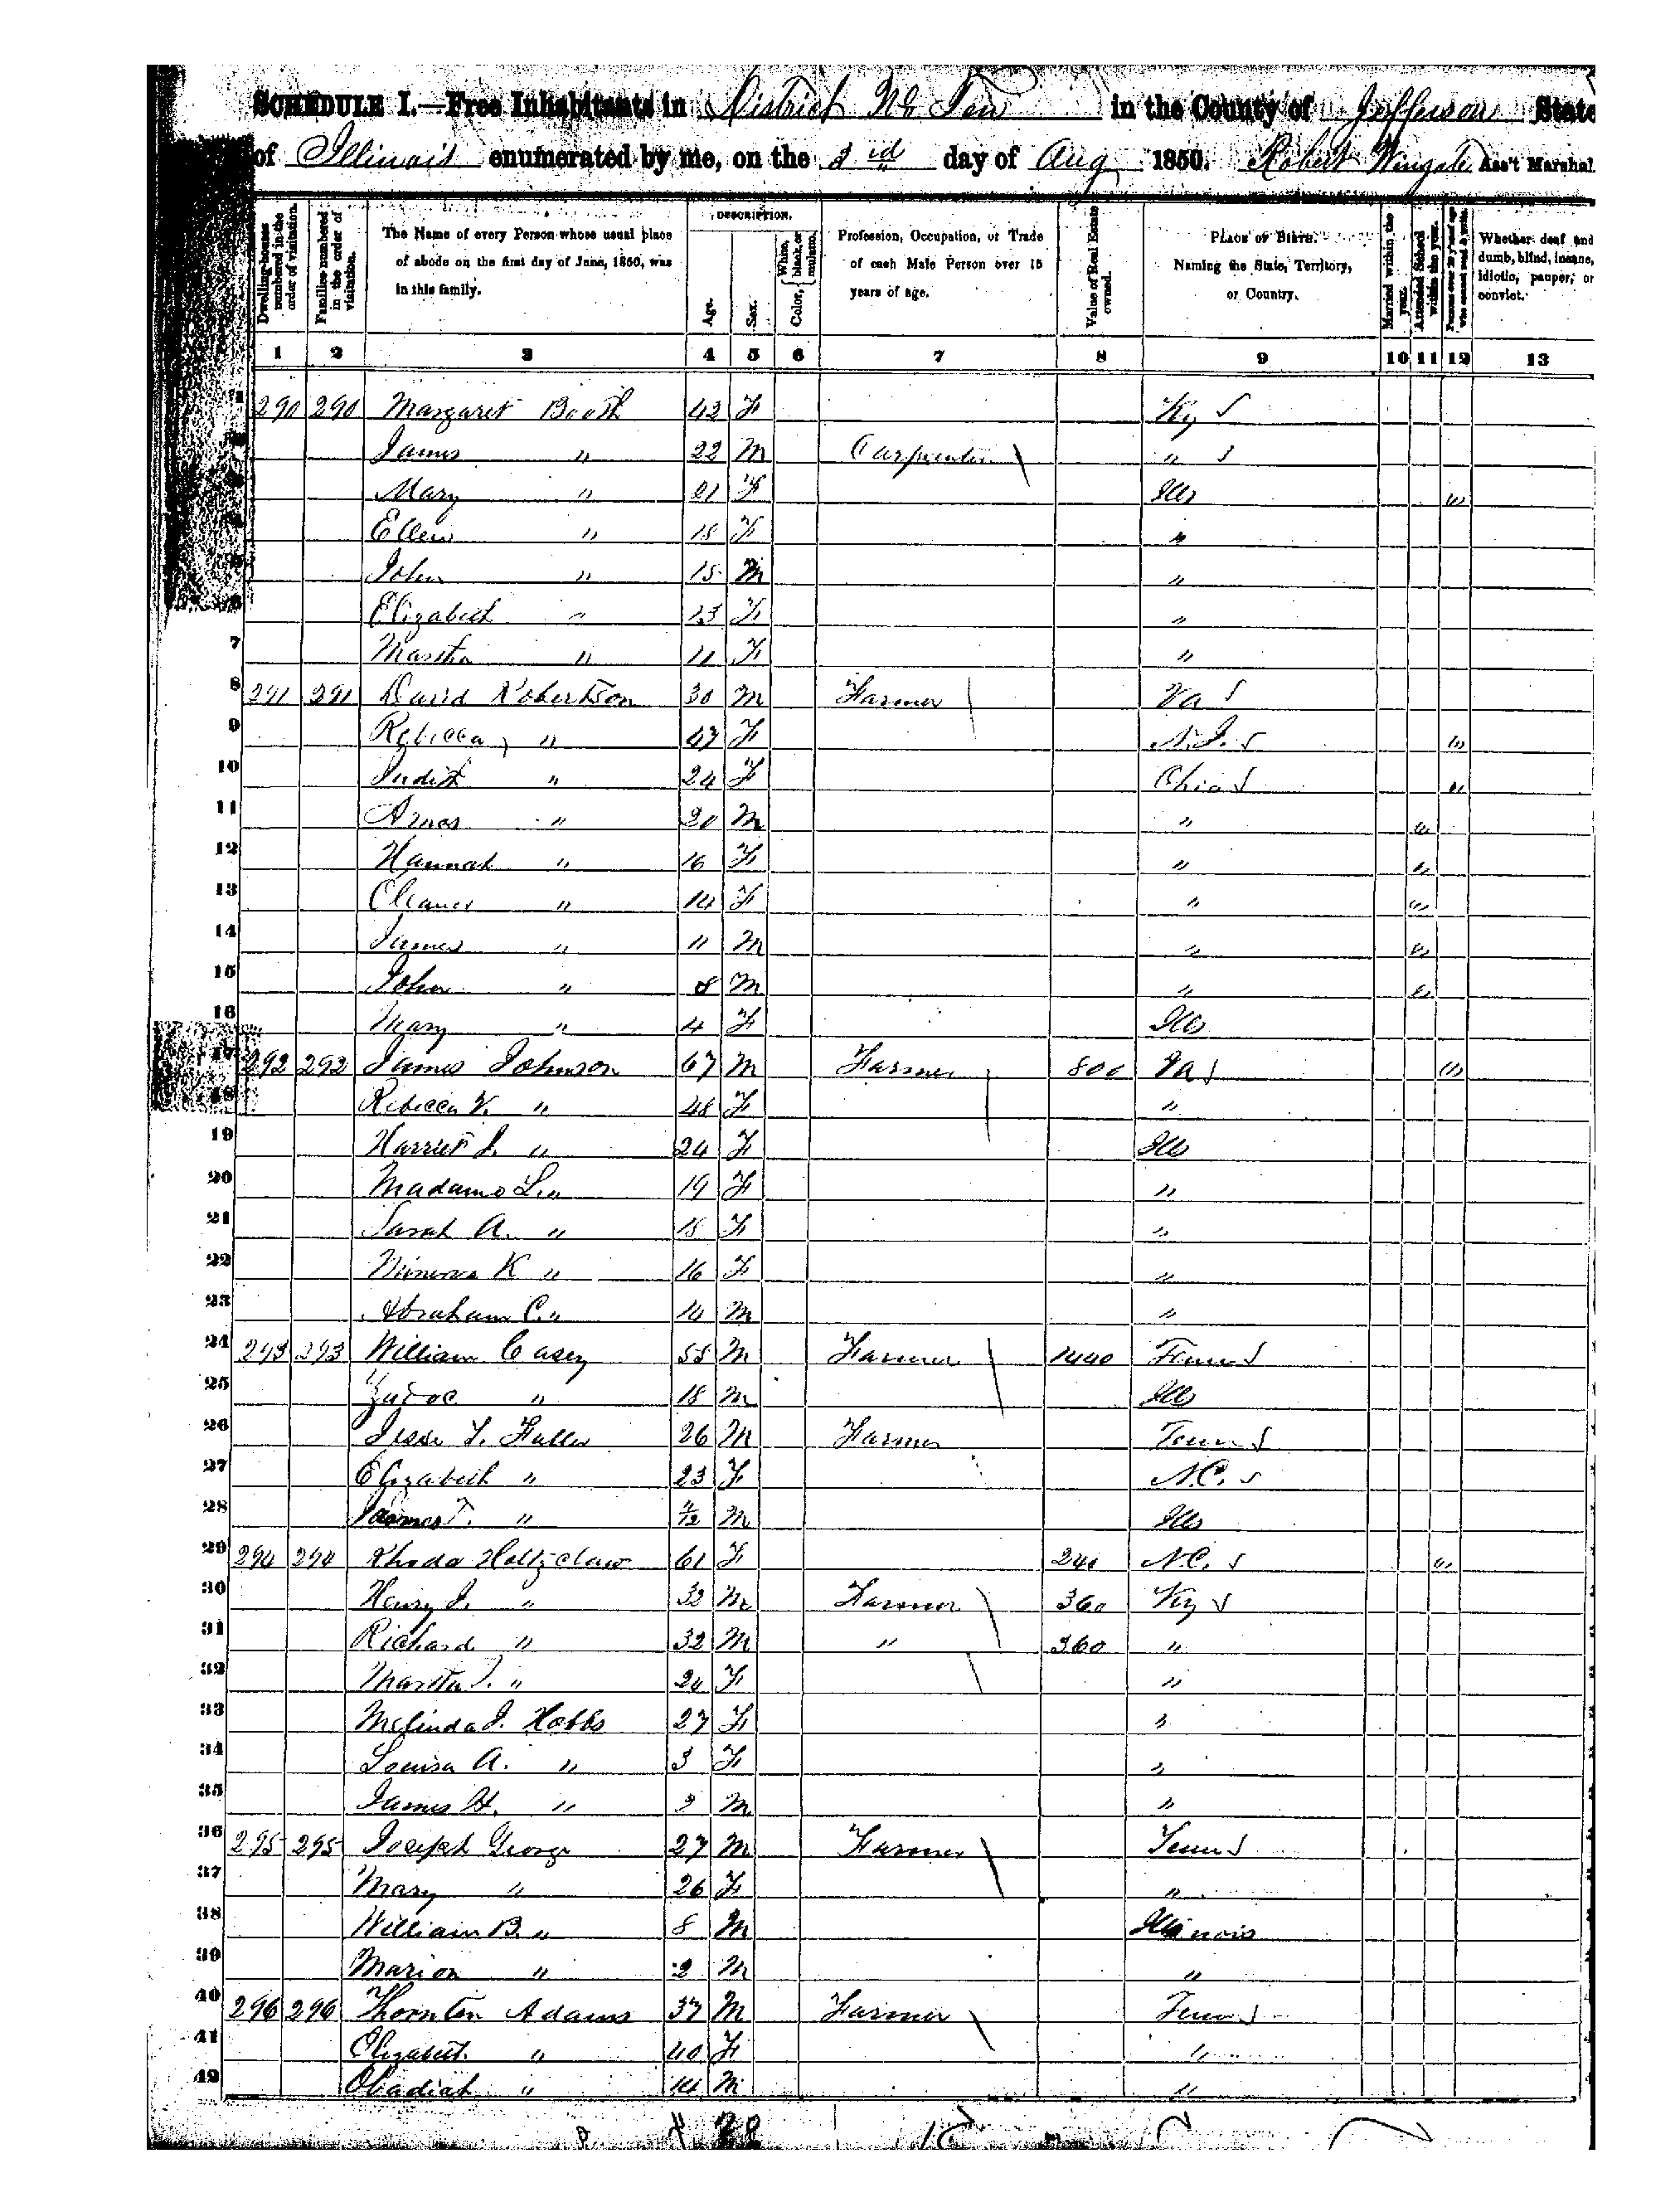 SCHEDULE I.—Free Inhabitants in District No Ten in the County of Jefferson State
of Illinois enumerated by me, on the 3rd day of Aug 1850. Robert Wingate Ass't Marshal
Dwelling-houses numbered in the order of visitation.
Families numbered in the order of visitation.
The Name of every Person whose usual place of abode on the first day of June, 1850, was in this family.
DESCRIPTION.
Age.
Sex.
Color, White, black, or mulatto.
Profession, Occupation, or Trade of each Male Person over 15 years of age.
Value of Real Estate owned.
PLACE OF BIRTH. Naming the State, Territory, or Country.
Married within the year.
Attended School within the year.
Persons over 20 y'rs of age who cannot read & write.
Whether deaf and dumb, blind, insane, idiotic, pauper, or convict.
1 2 3 4 5 6 7 8 9 10 11 12 13
290 290 Margaret Booth 42 F Ky
James " 22 M Carpenter "
Mary " 21 F Ills "
Ellen " 18 F "
John " 15 M "
Elizabeth " 13 F "
7 Martha " 11 F "
8 291 291 David Robertson 30 M Farmer Va
9 Rebecca " 47 F N.J. "
10 Judith " 24 F Ohio "
11 Amos " 20 M " "
12 Hannah " 16 F " "
13 Eleanor " 14 F " "
14 James " 11 M " "
15 John " 8 M " "
16 Mary " 4 F Ills
17 292 292 James Johnson 67 M Farmer 800 Va "
18 Rebecca V. " 48 F "
19 Harriet J. " 24 F Ills
20 Madamo L. " 19 F "
21 Sarah A. " 18 F "
22 Minerva K " 16 F "
23 Abraham C. " 14 M "
24 293 293 William Casey 55 M Farmer 1440 Tenn
25 Zadoc " 18 M Ills
26 Jesse T. Fuller 26 M Farmer Tenn
27 Elizabeth " 23 F N.C.
28 James T. " /12 M Ills
29 294 294 Rhoda Holtzclaw 61 F 240 N.C. "
30 Henry J. " 32 M Farmer 360 Ky
31 Richard " 32 M " 360 "
32 Martha J. " 24 F "
33 Melinda J. Hobbs 27 F "
34 Louisa A. " 3 F "
35 James H. " 2 M "
36 295 295 Joseph George 27 M Farmer Tenn
37 Mary " 26 F "
38 William B. " 8 M Illinois
39 Marion " 2 M "
40 296 296 Thornton Adams 37 M Farmer Tenn
41 Elizabeth " 40 F "
42 Obadiah " 14 M "